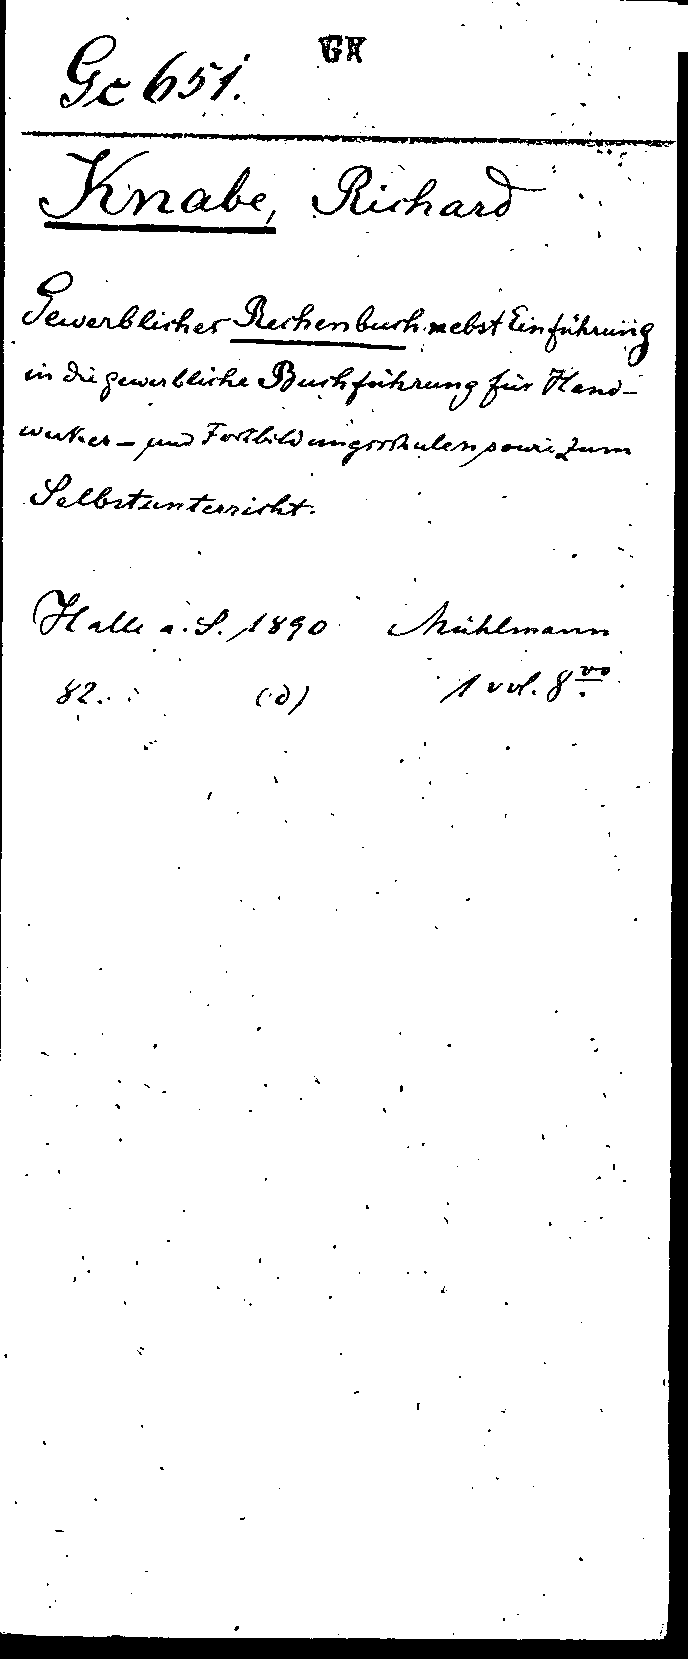 GK
Gc 651.
Knabe, Richard
Gewerbliches Rechenbuch nebst Einführung
in die gewerbliche Buchführung für Hand-
werker- und Fortbildungsschulen sowie zum
Selbstunterricht.
Halle a. S. 1890 Mühlmann
82. (d) 1 vol. 8vo.